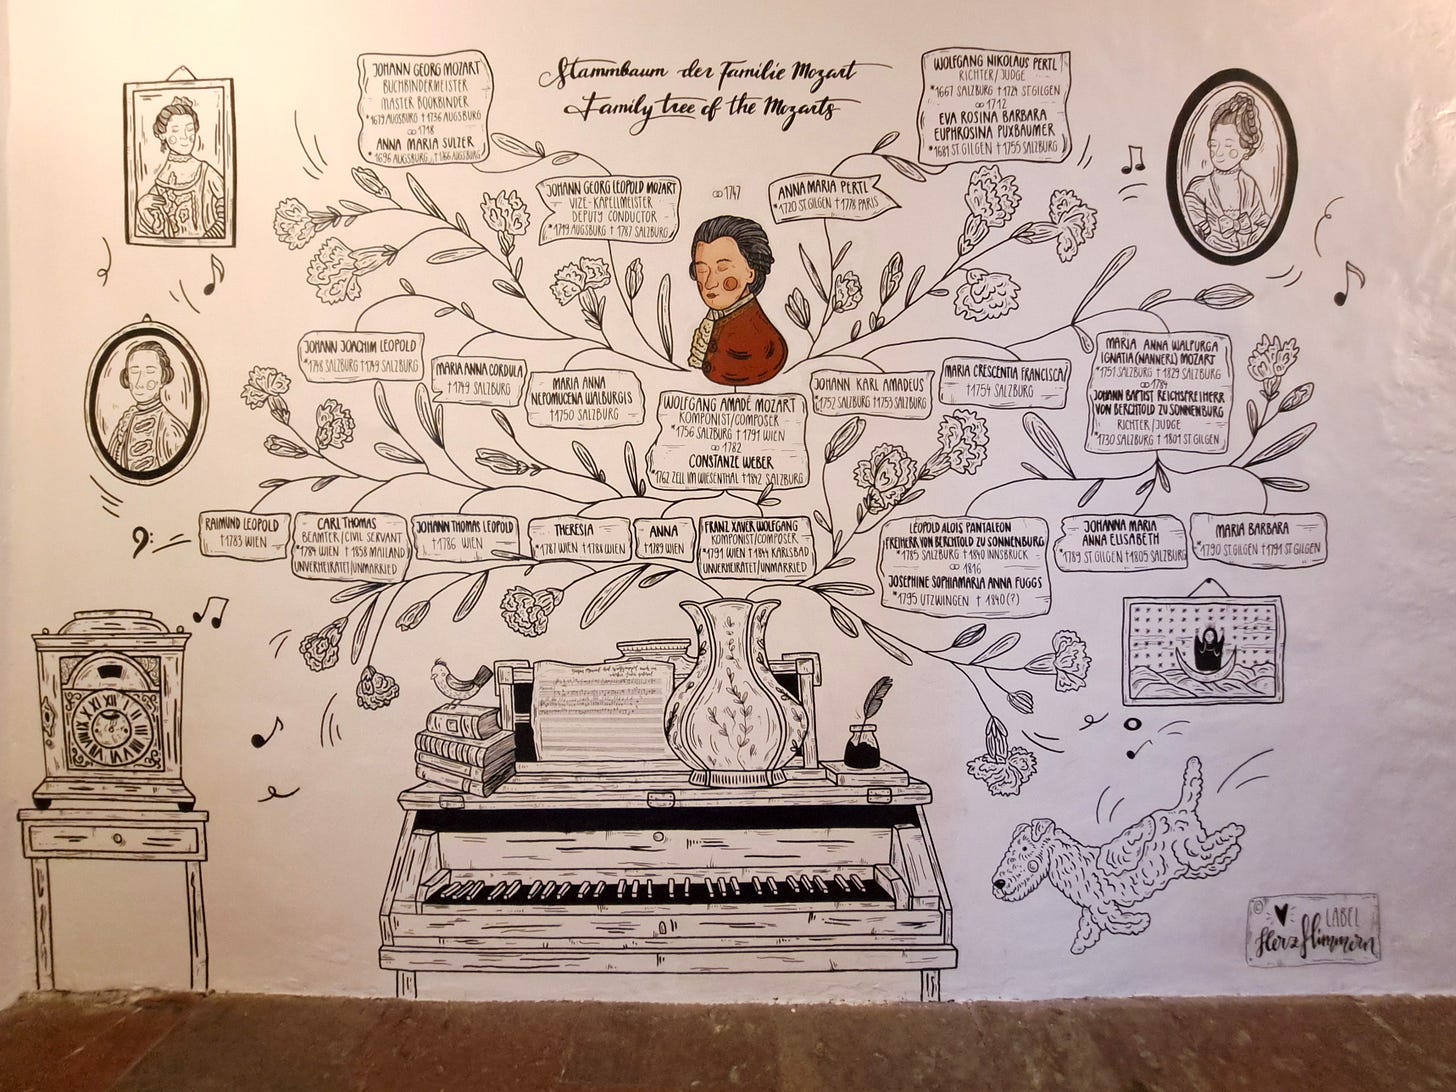 Stammbaum der Familie Mozart
Family tree of the Mozarts
JOHANN GEORG MOZART
BUCHBINDERMEISTER
MASTER BOOKBINDER
*1679 AUGSBURG †1736 AUGSBURG
∞ 1718
ANNA MARIA SULZER
*1696 AUGSBURG †1766 AUGSBURG
WOLFGANG NIKOLAUS PERTL
RICHTER/JUDGE
*1667 SALZBURG †1724 ST.GILGEN
∞ 1712
EVA ROSINA BARBARA
EUPHROSINA PUXBAUMER
*1681 ST.GILGEN †1755 SALZBURG
JOHANN GEORG LEOPOLD MOZART
VIZE-KAPELLMEISTER
DEPUTY CONDUCTOR
*1719 AUGSBURG †1787 SALZBURG
∞ 1747
ANNA MARIA PERTL
*1720 ST.GILGEN †1778 PARIS
JOHANN JOACHIM LEOPOLD
*1748 SALZBURG †1749 SALZBURG
MARIA ANNA CORDULA
†1749 SALZBURG
MARIA ANNA
NEPOMUCENA WALBURGIS
†1750 SALZBURG
WOLFGANG AMADÉ MOZART
KOMPONIST/COMPOSER
*1756 SALZBURG †1791 WIEN
∞ 1782
CONSTANZE WEBER
*1762 ZELL IM WIESENTHAL †1842 SALZBURG
JOHANN KARL AMADEUS
*1752 SALZBURG †1753 SALZBURG
MARIA CRESCENTIA FRANCISCA
†1754 SALZBURG
MARIA ANNA WALPURGA
IGNATIA (NANNERL) MOZART
*1751 SALZBURG †1829 SALZBURG
∞ 1784
JOHANN BAPTIST REICHSFREIHERR
VON BERCHTOLD ZU SONNENBURG
RICHTER/JUDGE
*1730 SALZBURG †1801 ST.GILGEN
RAIMUND LEOPOLD
†1783 WIEN
CARL THOMAS
BEAMTER/CIVIL SERVANT
*1784 WIEN †1858 MAILAND
UNVERHEIRATET/UNMARRIED
JOHANN THOMAS LEOPOLD
†1786 WIEN
THERESIA
*1787 WIEN †1788 WIEN
ANNA
†1789 WIEN
FRANZ XAVER WOLFGANG
KOMPONIST/COMPOSER
*1791 WIEN †1844 KARLSBAD
UNVERHEIRATET/UNMARRIED
LEOPOLD ALOIS PANTALEON
FREIHERR VON BERCHTOLD ZU SONNENBURG
*1785 SALZBURG †1840 INNSBRUCK
∞ 1816
JOSEPHINE SOPHIA MARIA ANNA FUGGS
*1795 UTZWINGEN †1840(?)
JOHANNA MARIA
ANNA ELISABETH
*1789 ST.GILGEN †1805 SALZBURG
MARIA BARBARA
*1790 ST.GILGEN †1791 ST.GILGEN
© LABEL
Herz Flimmern